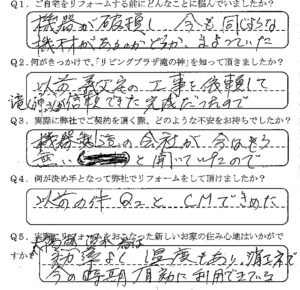 Q1. ご自宅をリフォームする前にどんなことに悩んでいましたか?
機器が破損し 今も同じような
機材があるのかどうか、まよっていた
Q2. 何がきっかけで、「リビングプラザ滝の神」を知って頂きましたか?
以前 義父宅の工事を依頼して
信頼できた完成だったので
Q3. 実際に弊社でご契約を頂く際、どのような不安をお持ちでしたか?
機器製造の会社が今はもう
無い と聞いていたので
Q4. 何が決め手となって弊社でリフォームをして頂けましたか?
以前の件 Q2と CMできめた
Q5. 実際にリフォームをおこなった新しいお家の住み心地はいかがで
すか
効率よく 湿度もあり、省エネで
今の時期有効に利用できている